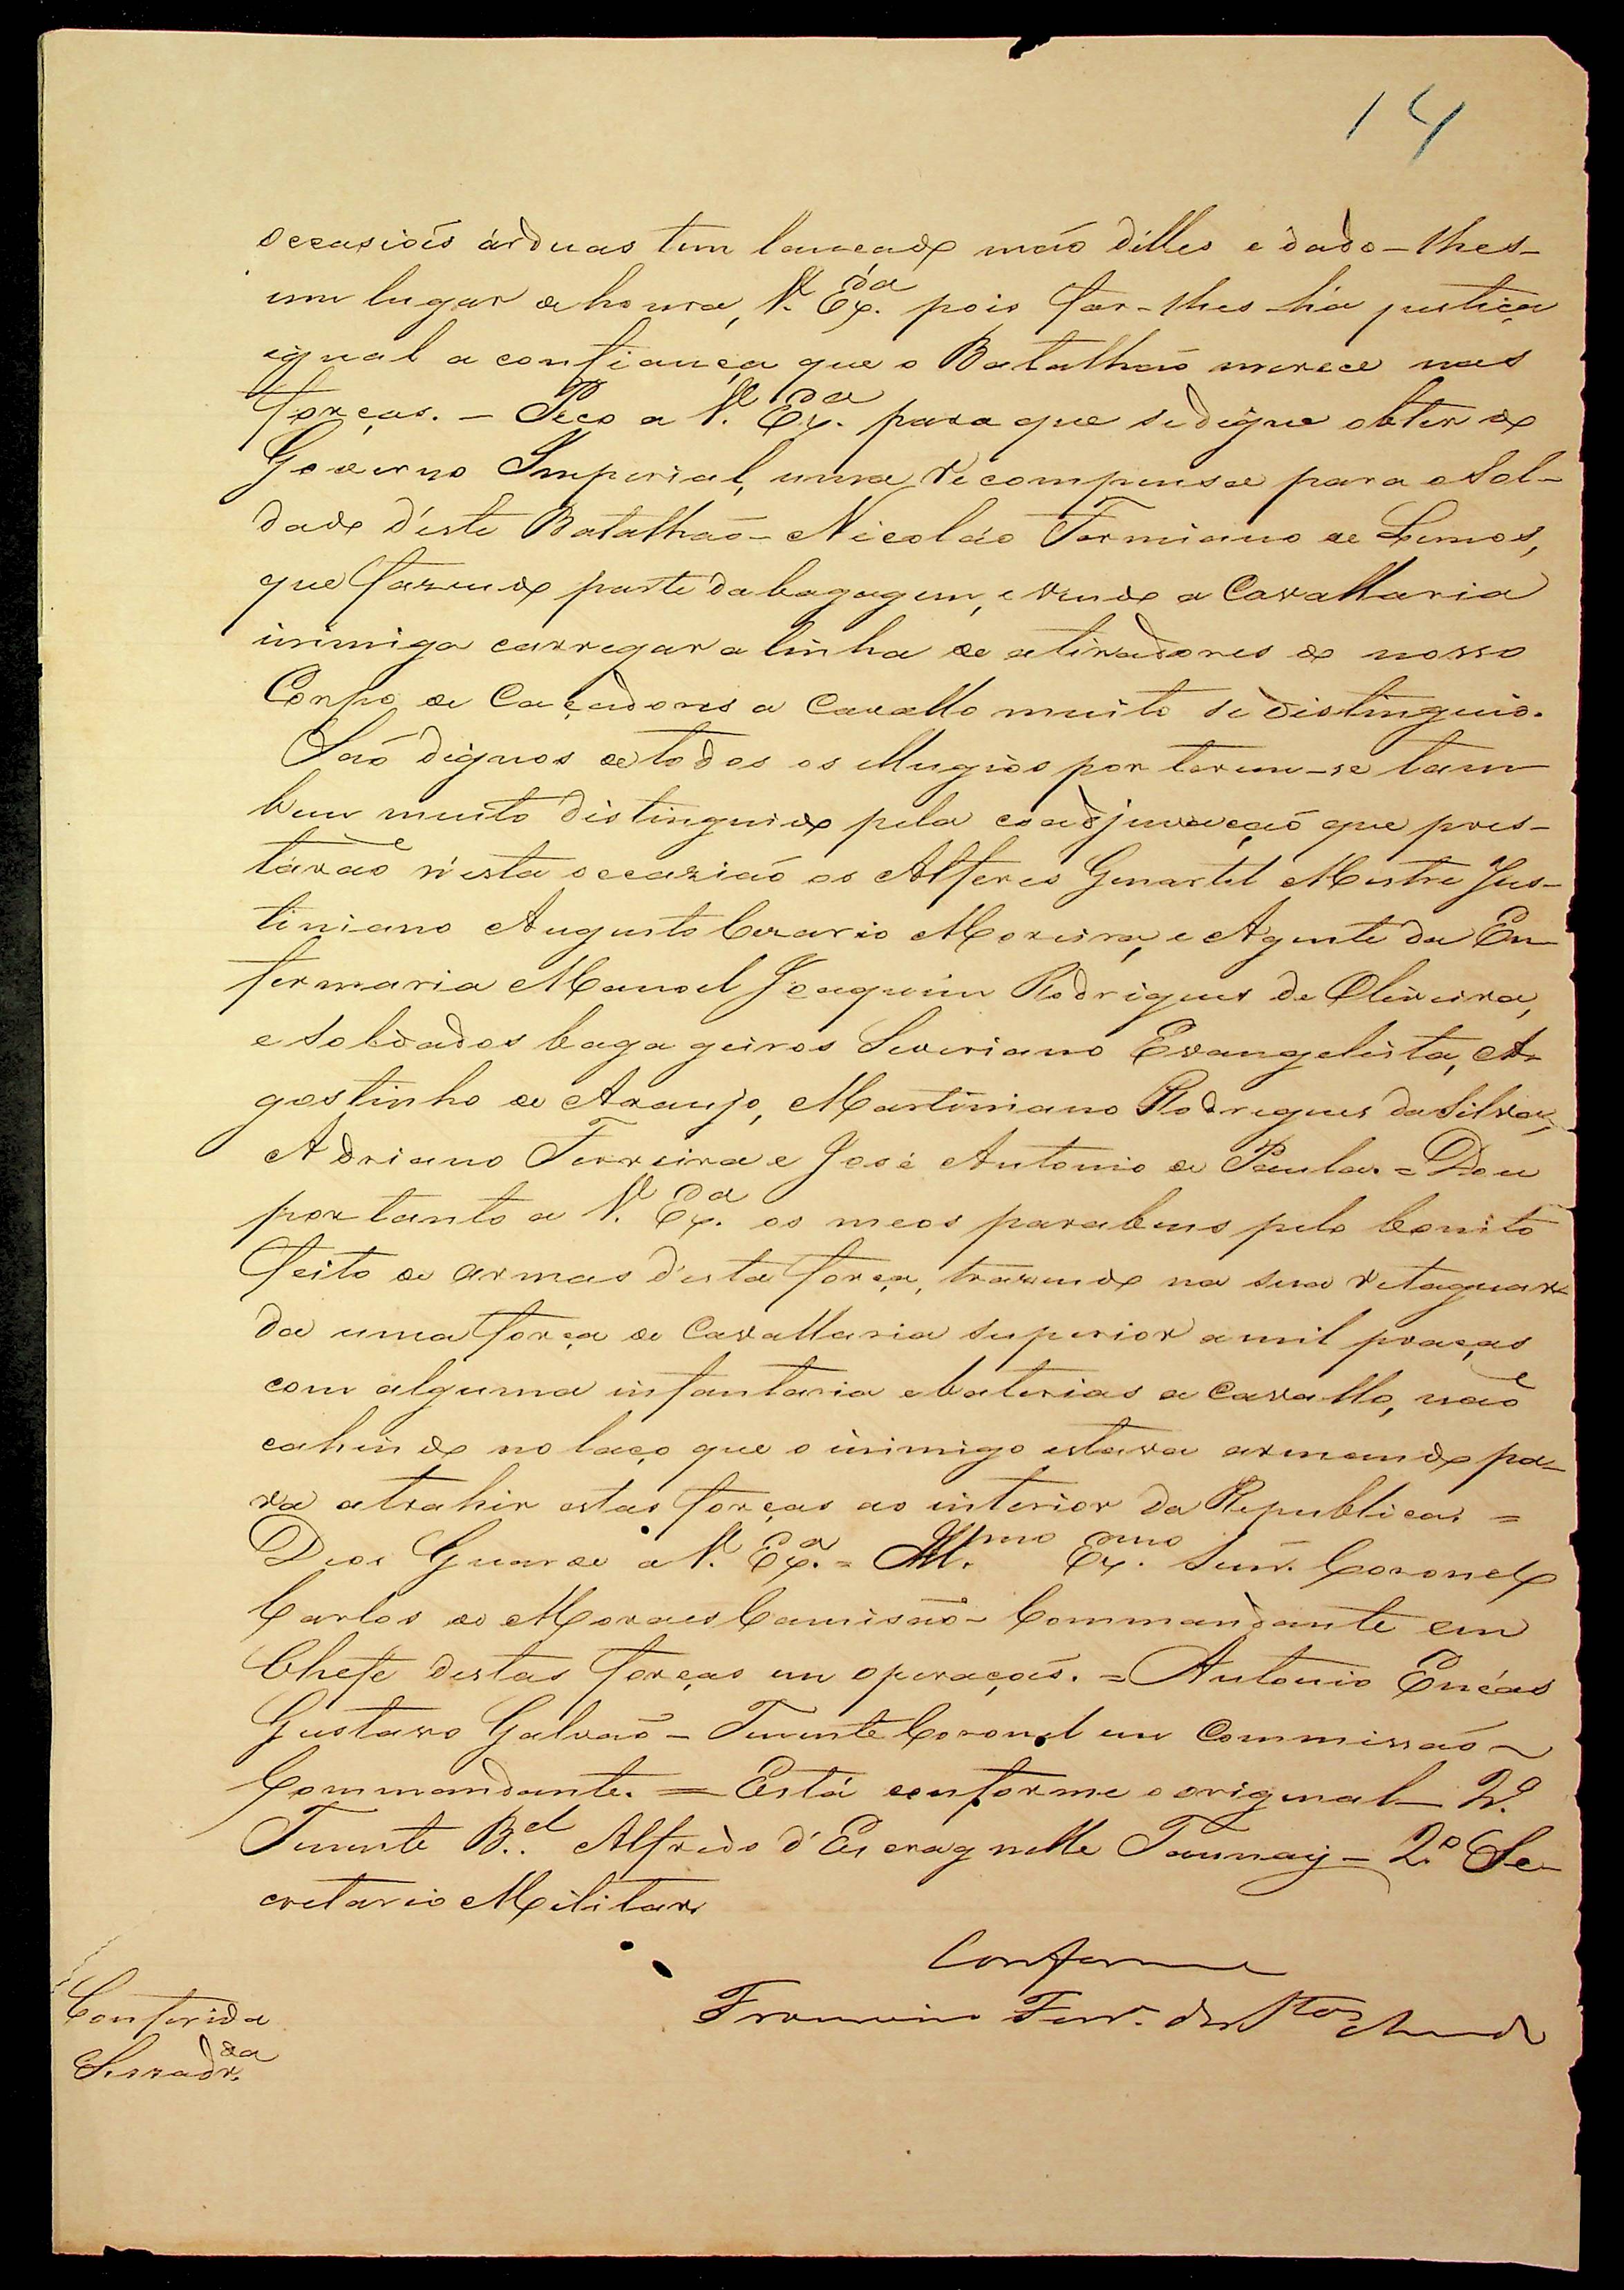 14
occasiões árduas tem lançado mão d'elles e dado-lhes
um lugar de honra, V. Ex.ª pois far-lhes-há justiça
egual a confiança que o Batalhão merece nas
forças. — Peço a V. Ex.ª para que se digne obter do
Governo Imperial, uma recompensa para o Sol-
dado d'este Batalhão — Nicoláo Formiano de Lemos,
que fazendo parte da bagagem, e vendo a Cavallaria
inimiga carregar a linha de atiradores do nosso
Corpo de Caçadores a Cavallo muito se distinguio.
São dignos de todos os Ellugios por terem-se tam
bem muito distinguido pela coadjuvação que pres-
tárão n'esta occazião os Alferes Quartel Mestre Jus-
tiniano Augusto Cezario Moreira, e Agente da En-
fermaria Manoel Joaquim Rodrigues de Oliveira,
e Soldados bagageiros Severiano Evangelista, A-
gostinho de Araujo, Martiniano Rodrigues da Silva,
Adriano Ferreira e José Antonio de Paula. = Dou
portanto a V. Ex.ª os meos parabens pelo bonito
feito de armas d'esta força, trazendo na sua retaguar-
da uma força de Cavallaria superior a mil praças
com alguma infantaria e baterias a Cavallo, não
cahindo no laço que o inimigo estava armando pa-
ra atrahir estas forças ao interior da Republica. =
Deos Guarde a V. Ex.ª = Ill.mo Ex.mo Senr. Coronel
Carlos de Moraes Camisão — Commandante em
Chefe destas forças em operações. = Antonio Enéas
Gustavo Galvão — Tenente Coronel em Commissão —
Commandante. = Está conforme o original — 2º
Tenente B.el Alfredo d'Escragnolle Taunay — 2º Se-
cretario Militar.
Conforme
Conferida